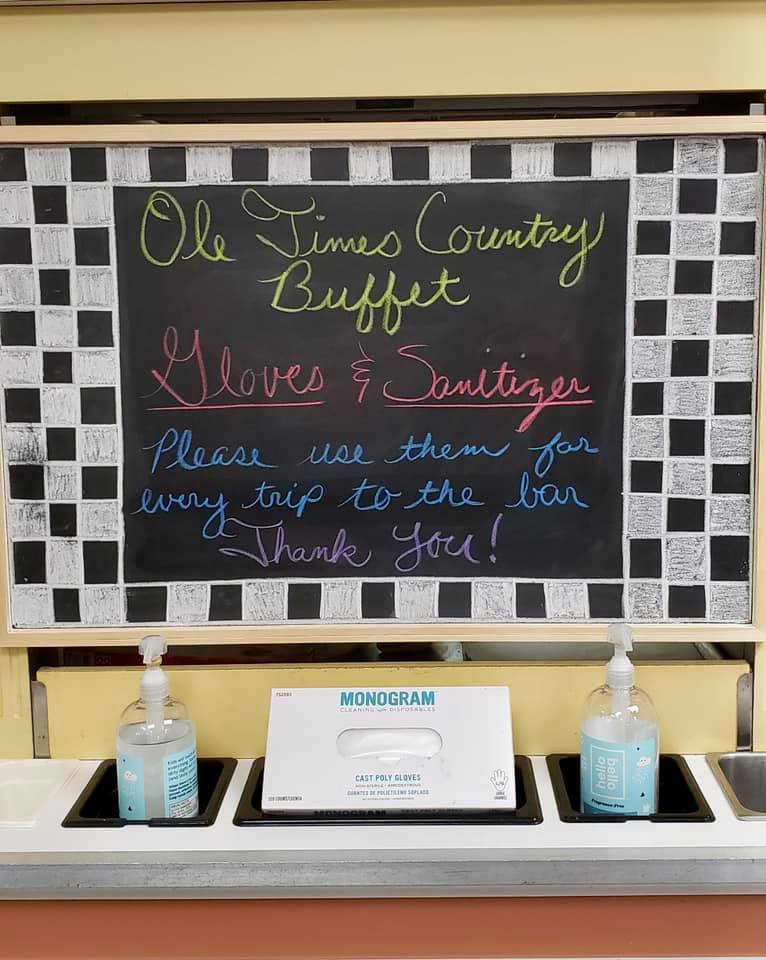 Ole Times Country
Buffet
Gloves & Sanitizer
Please use them for
every trip to the bar
Thank You!
MONOGRAM
CLEANING DISPOSABLES
CAST POLY GLOVES
NON-STERILE • AMBIDEXTROUS
GUANTES DE POLIETILENO SOPLADO
hello
bello
Fragrance Free